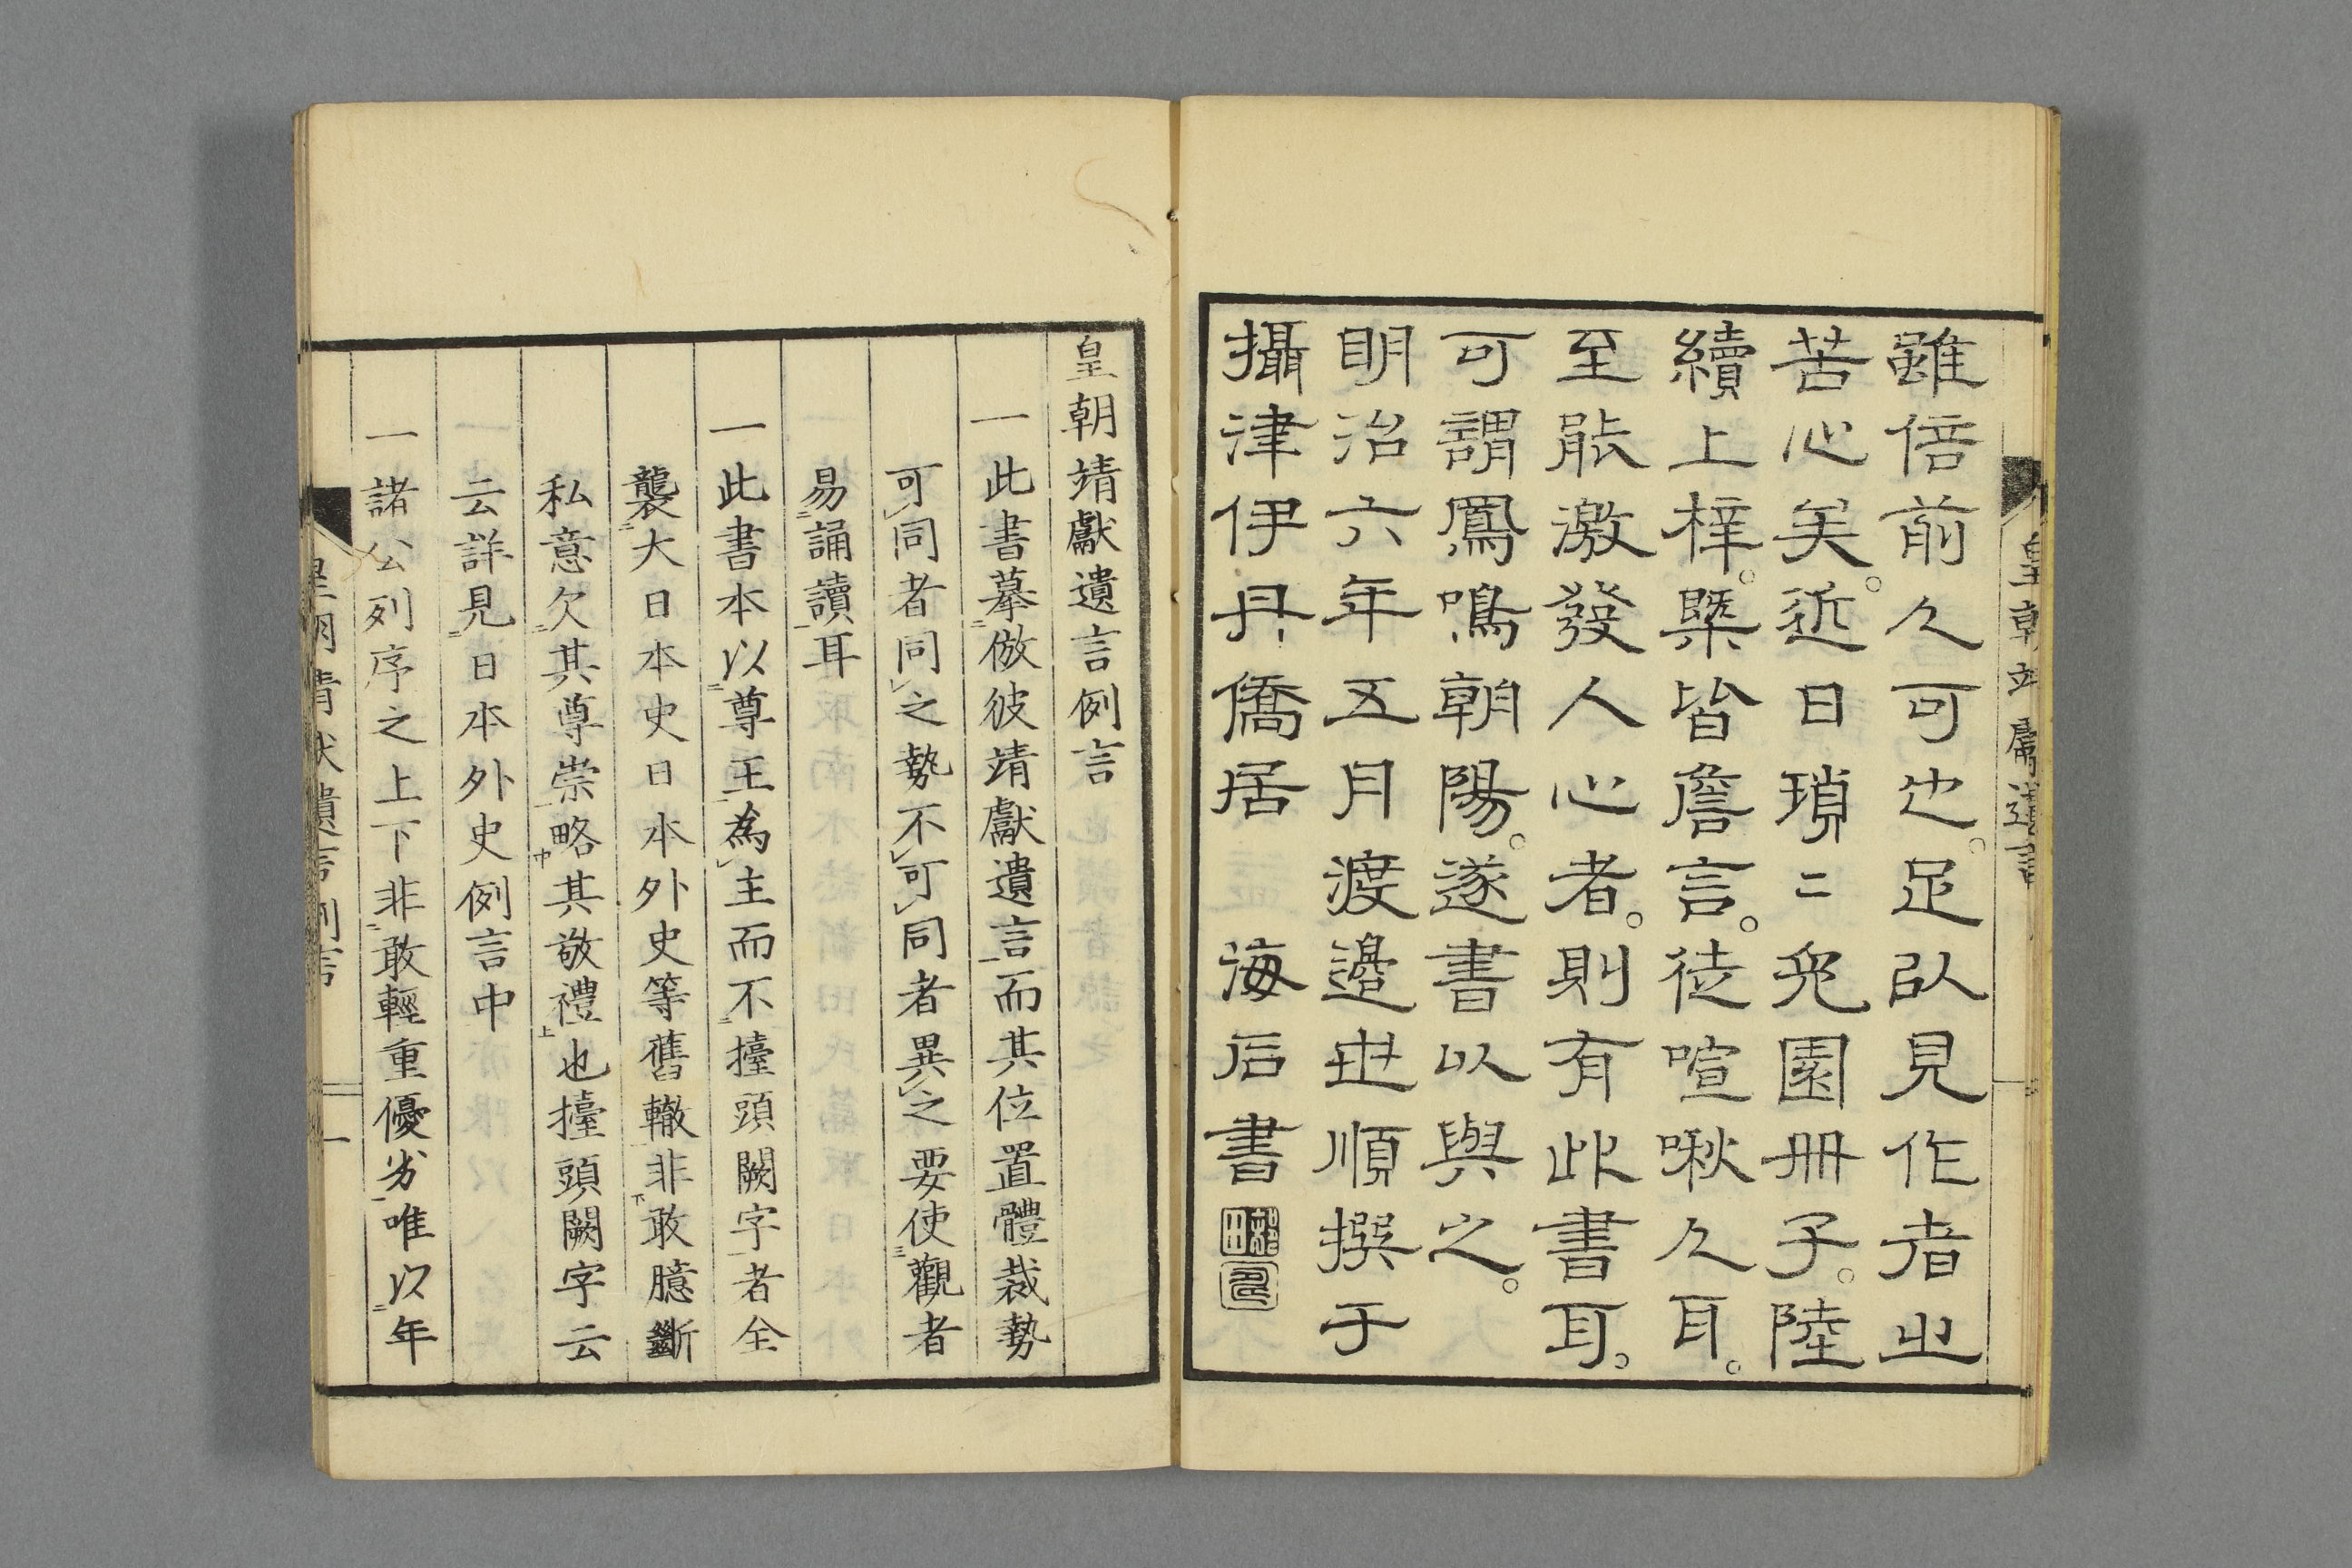 雖倍前人可也。足以見作者之
苦心矣。近日瑣〻兎園冊子。陸
續上梓。槩皆詹言。徒喧啾人耳。
至能激發人心者。則有此書耳。
可謂鳳鳴朝陽。遂書以與之。
明治六年五月渡邉世順撰于
攝津伊丹僑居 海石書
皇朝靖獻遺言例言
一此書摹倣彼靖獻遺言而其位置體裁勢
可同者同之勢不可同者異之要使觀者
易誦讀耳
一此書本以尊王為主而不擡頭闕字者全
襲大日本史日本外史等舊轍非敢臆斷
私意欠其尊崇略其敬禮也擡頭闕字云
云詳見日本外史例言中
一諸公列序之上下非敢輕重優劣唯以年
皇朝靖獻遺言例言
一